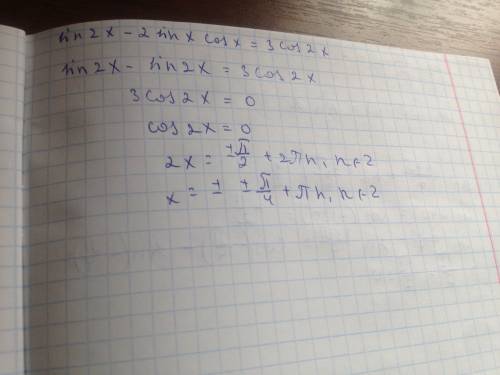 sin2x - 2 sin x cos x = 3 cos 2x
sin2x - sin2x = 3 cos 2x
3 cos 2x = 0
cos 2x = 0
2x = ±π/2 + 2πn, n∈Z
x = ± ± π/4 + πn, n∈Z